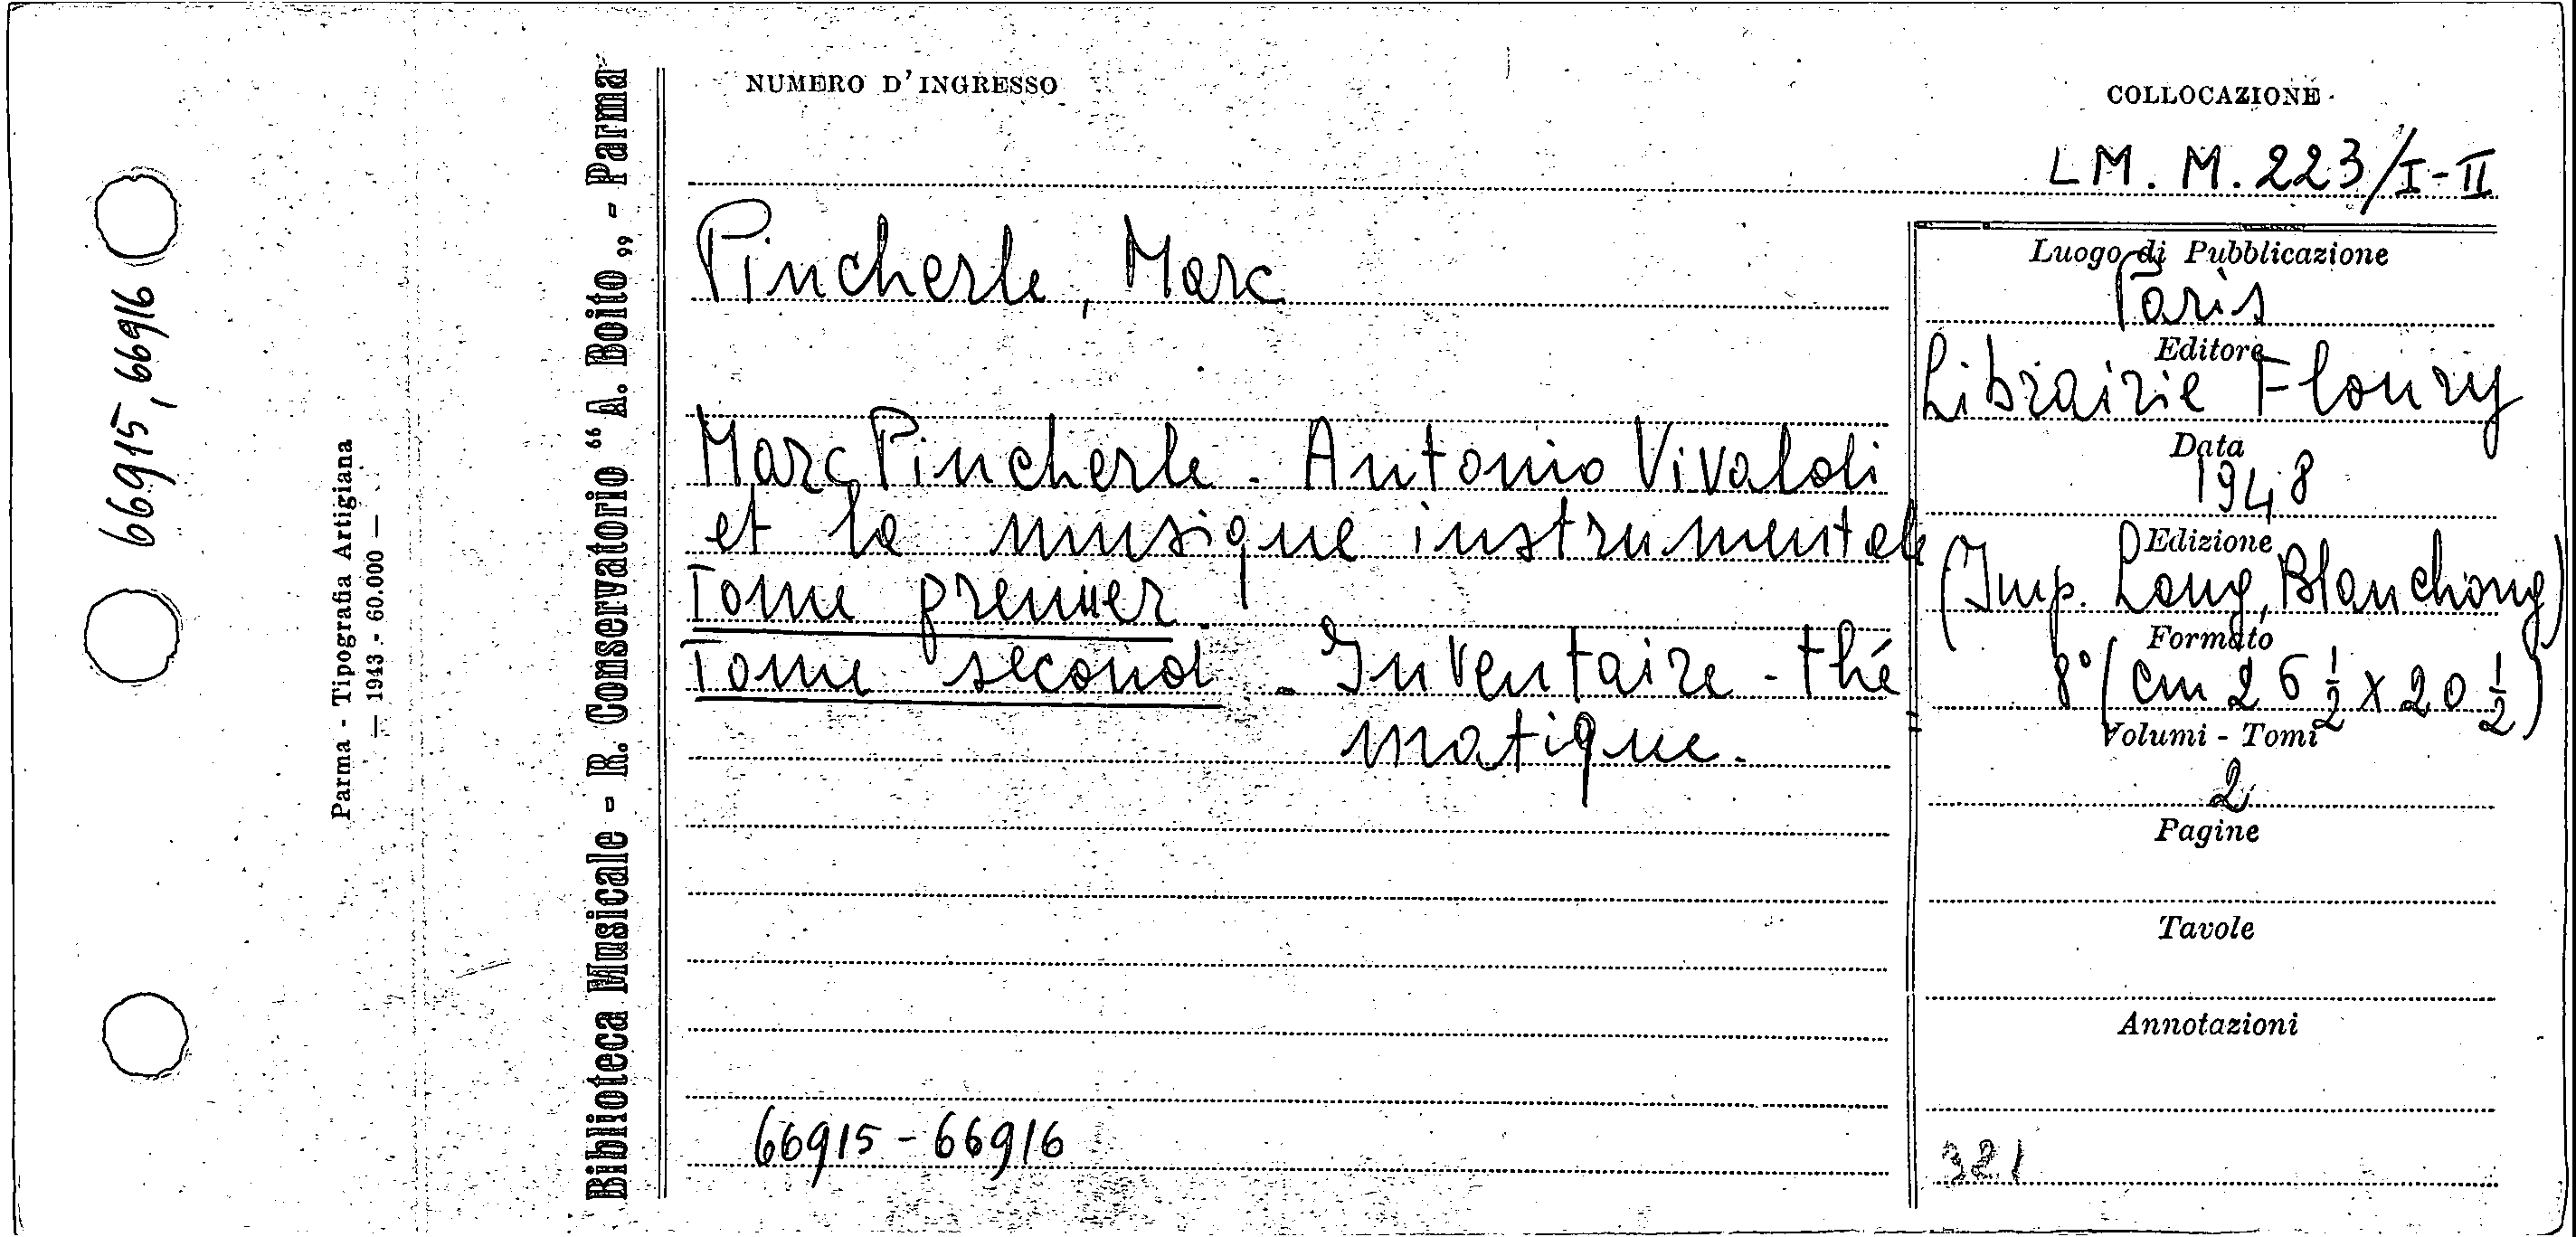 66915, 66916
Parma - Tipografia Artigiana
— 1943 - 60.000 —
Biblioteca Musicale - R. Conservatorio “A. Boito„ - Parma
NUMERO D'INGRESSO
COLLOCAZIONE
LM. M. 223/I-II
Pincherle, Marc
Marc Pincherle - Antonio Vivaldi
et la musique instrumentale
Tome premier.
Tome second. - Inventaire - thé
matique.
66915 - 66916
Luogo di Pubblicazione
Paris
Editore
Librairie Floury
Data
1948
Edizione
(Imp. Lang, Blanchong)
Formato
8° (cm 26 ½ x 20 ½)
Volumi - Tomi
2
Pagine
Tavole
Annotazioni
321